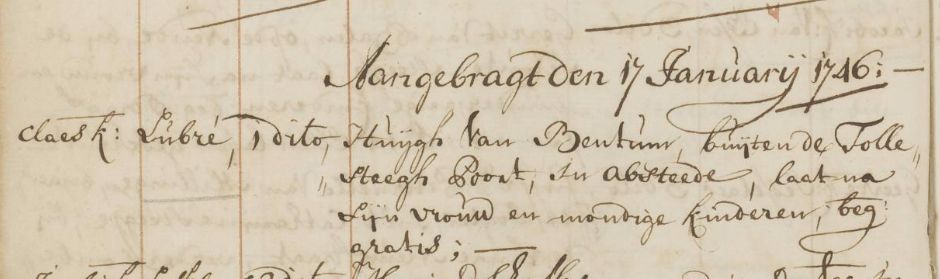 Aangebragt den 17 Januarij 1746: —
Claes k: Lubré, 1 dito, Huijgh Van Bentum, buijten de Tolle„
„ steegh Poort, in Absteede, laet na
sijn vrouw en mondige kinderen, beg:
gratis; —